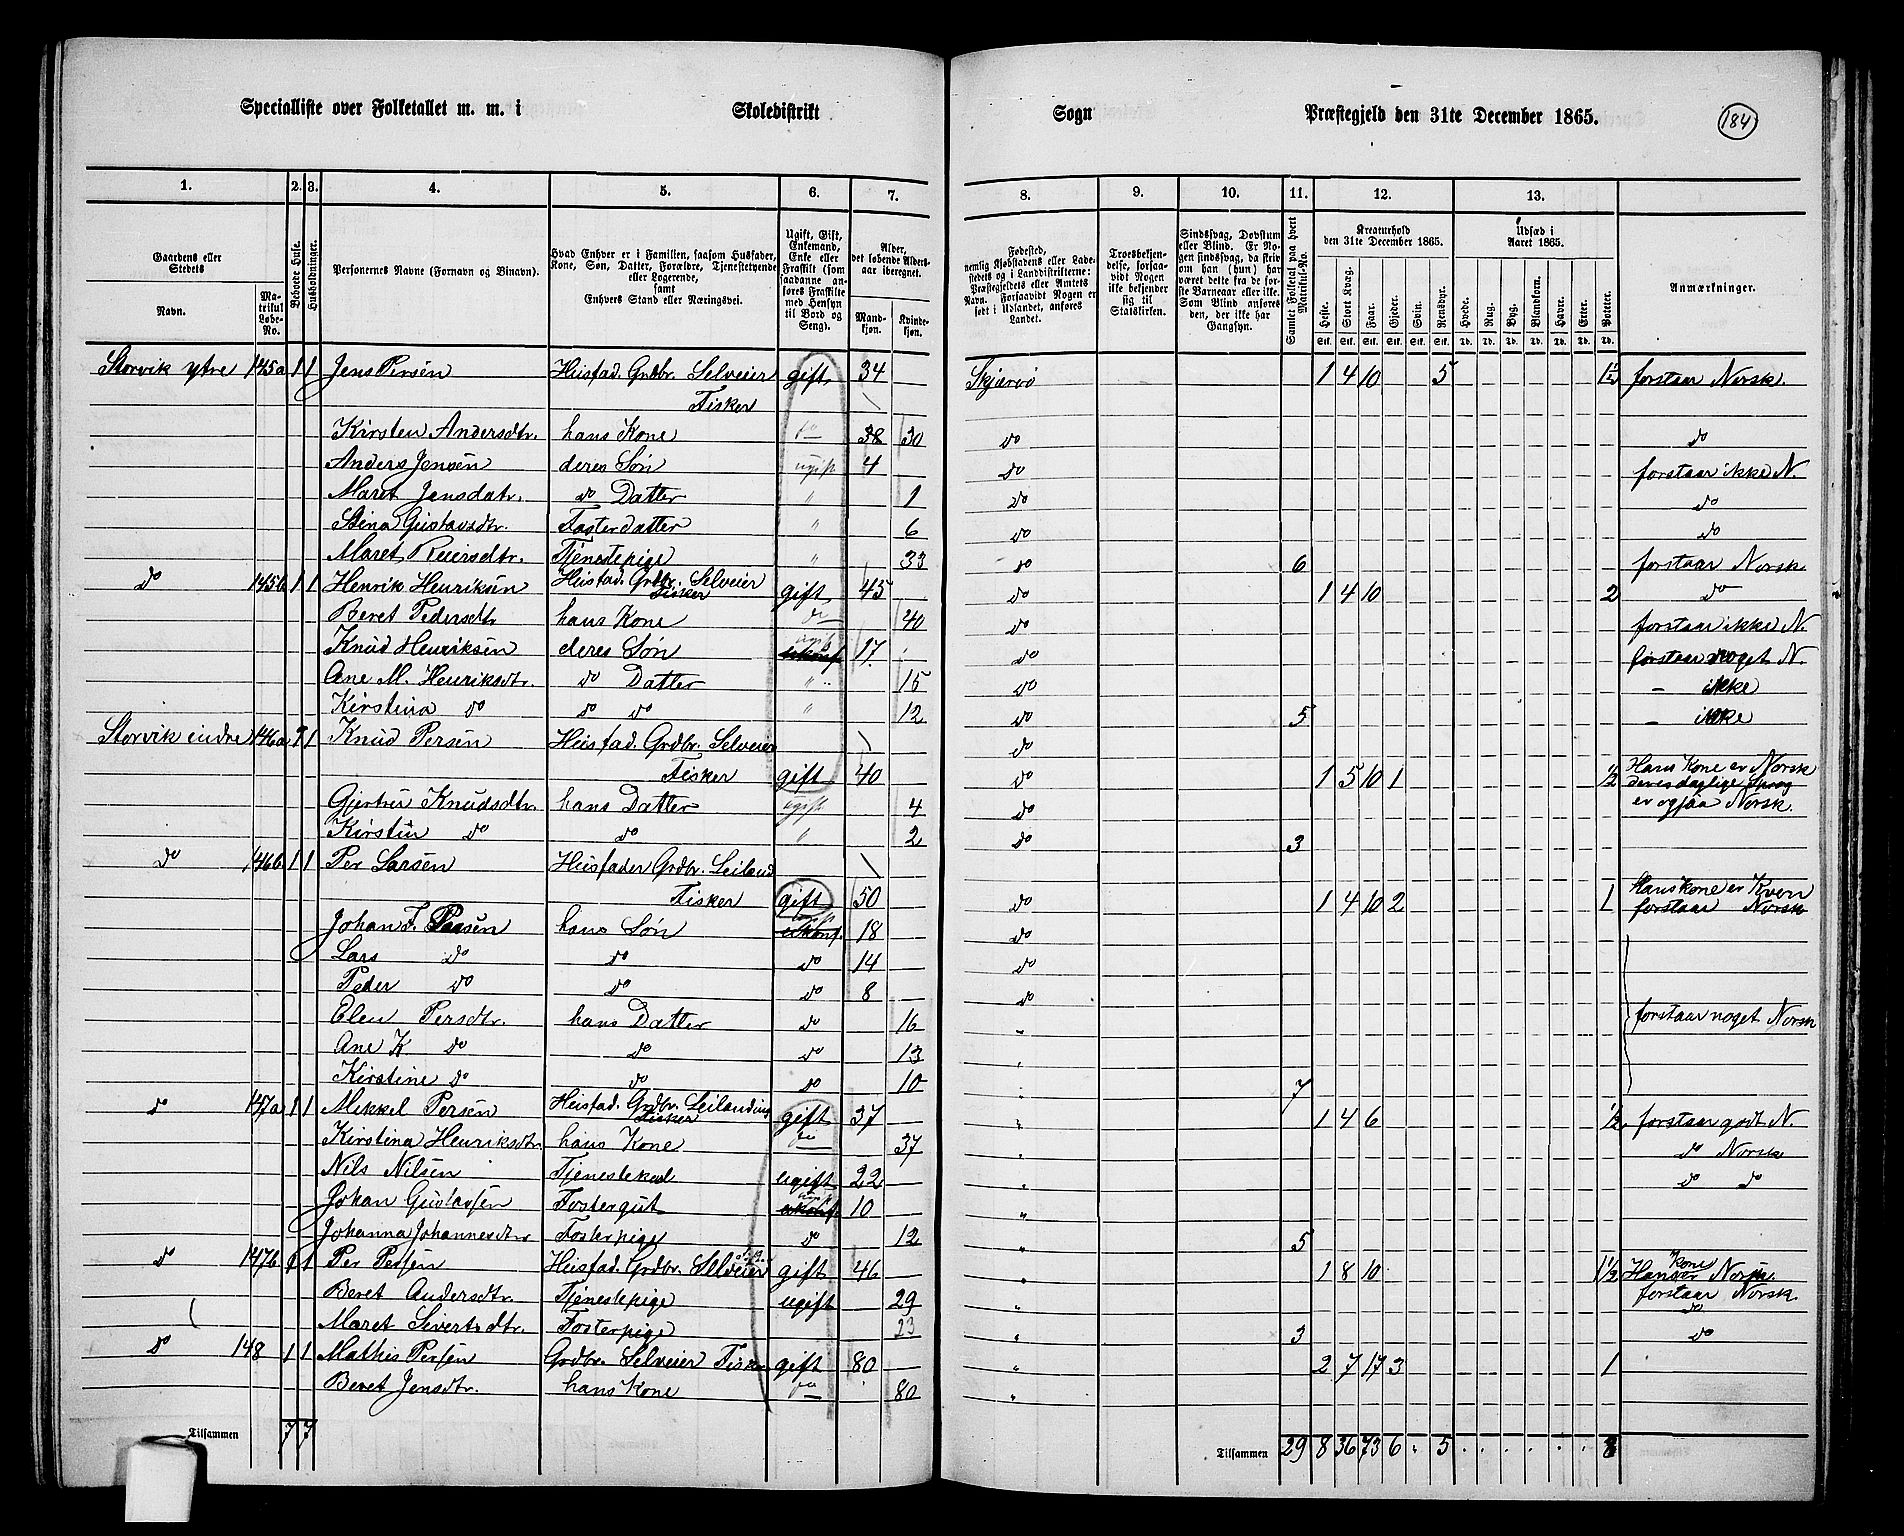 Specialliste over Folketallet m. m. i Skoledistrikt Sogn Præstegjeld den 31te December 1865. 184
1. 2. 3. 4. 5. 6. 7. 8. 9. 10. 11. 12. 13.
Gaardens eller Stedets Navn.
Matrikul Løbe-No.
Beboede Huse.
Husholdninger.
Personernes Navne (Fornavn og Binavn).
Hvad Enhver er i Familien, saasom Husfader, Kone, Søn, Datter, Forældre, Tjenestetyende eller Logerende, samt Enhvers Stand eller Næringsvei.
Ugift, Gift, Enkemand, Enke eller Fraskilt (som saadanne anføres Fraskilte med Hensyn til Bord og Seng).
Alder, det løbende Aldersaar iberegnet.
Mandkjøn. Kvindekjøn.
Fødested, nemlig Kjøbstadens eller Ladestedets og i Landdistrikterne: Præstegjeldets eller Amtets Navn. Forsaavidt Nogen er født i Udlandet, anføres Landet.
Troesbekjendelse, forsaavidt Nogen ikke bekjender sig til Statskirken.
Sindssvag, Døvstum eller Blind. Er Nogen sindssvag, da skrives om han (hun) har været dette fra de første Barneaar eller ikke. Som Blind anføres den, der ikke har Gangsyn.
Samlet Folketal paa hvert Matrikul-No.
Kreaturhold den 31te December 1865.
Heste. Stort Kvæg. Faar. Gjeder. Svin. Rensdyr.
Udsæd i Aaret 1865.
Hvede. Rug. Byg. Blandkorn. Havre. Erter. Poteter.
Anmærkninger.
Storvik ytre 145a 1 1 Jens Persen Husfad. Grdbr. Selveier gift 34 Skjærvø 1 4 10 5 1½ forstaar Norsk.
Fisker
Kirsten Andersdtr. hans Kone do 38 30 do do
Anders Jensen deres Søn ugift 4 do forstaar ikke N.
Maret Jensdatr. do Datter " 1 do do
Stina Gustavsdtr. Fosterdatter " 6 do do
Maret Reiersdtr. Tjenestepige " 33 do 6 forstaar Norsk
do 145b 1 1 Henrik Henriksen Husfad. Grdbr. Selveier Fisker gift 45 do 1 4 10 2 do
Beret Pedersdtr hans Kone do 40 do forstaar ikke N.
Knud Henriksen deres Søn ugift ukonf. 17 do forstaar noget N.
Ane M. Henriksdtr. do Datter " 15 do - ikke
Kirstina do do do " 12 do 5 - ikke
Storvik indre 146a 1 1 Knud Persen Husfad. Grdbr. Selveier do
Fisker gift 40 do 1 5 10 1 ½ Hans Kone er Norsk
deres daglige Sprog
Gjertru Knudsdtr. hans Datter ugift 4 do er ogsaa Norsk.
Kirstin do do " 2 do 3
do 146b 1 1 Per Larsen Husfader Grdbr. Leiland
Fisker gift 50 do 1 4 10 2 1 Hans Kone er Kven
forstaar Norsk
Johan F. Persen hans Søn ukonf. 18 do
Lars do do do 14 do
Peder do do do 8 do
Elen Persdtr. hans Datter do 16 " forstaar noget Norsk
Ane K do do do 13 "
Kirstine do do do 10 " 7
do 147a 1 1 Mikkel Persen Husfad. Grdbr. Leilanding Fisker gift 37 " 1 4 6 ½ forstaar godt N.
Kirstina Henriksdtr hans Kone do 37 " do Norsk
Nils Nilsen Tjenestekarl ugift 22 " do do
Johan Gustavsen Fostergut ugift ukonf. 10 "
Johanna Johannesdtr Fosterpige do 12 " 5
do 147b 1 1 Per Persen Husfad. Grdbr. Selveier gift 46 " 1 8 10 1½ Hans Kone er Norsk
Beret Andersdtr. Tjenestepige ugift 29 " forstaar Norsk.
Maret Sivertsdtr. Fosterpige 23 " 3 do
do 148 1 1 Mathis Persen Grdbr. Selveier Fisker gift 80 " 2 7 17 3 1 do
Beret Jensdtr. hans Kone do 80 "
Tilsammen 7 7 Tilsammen 29 8 36 73 6 . 5 . . . . . . 8